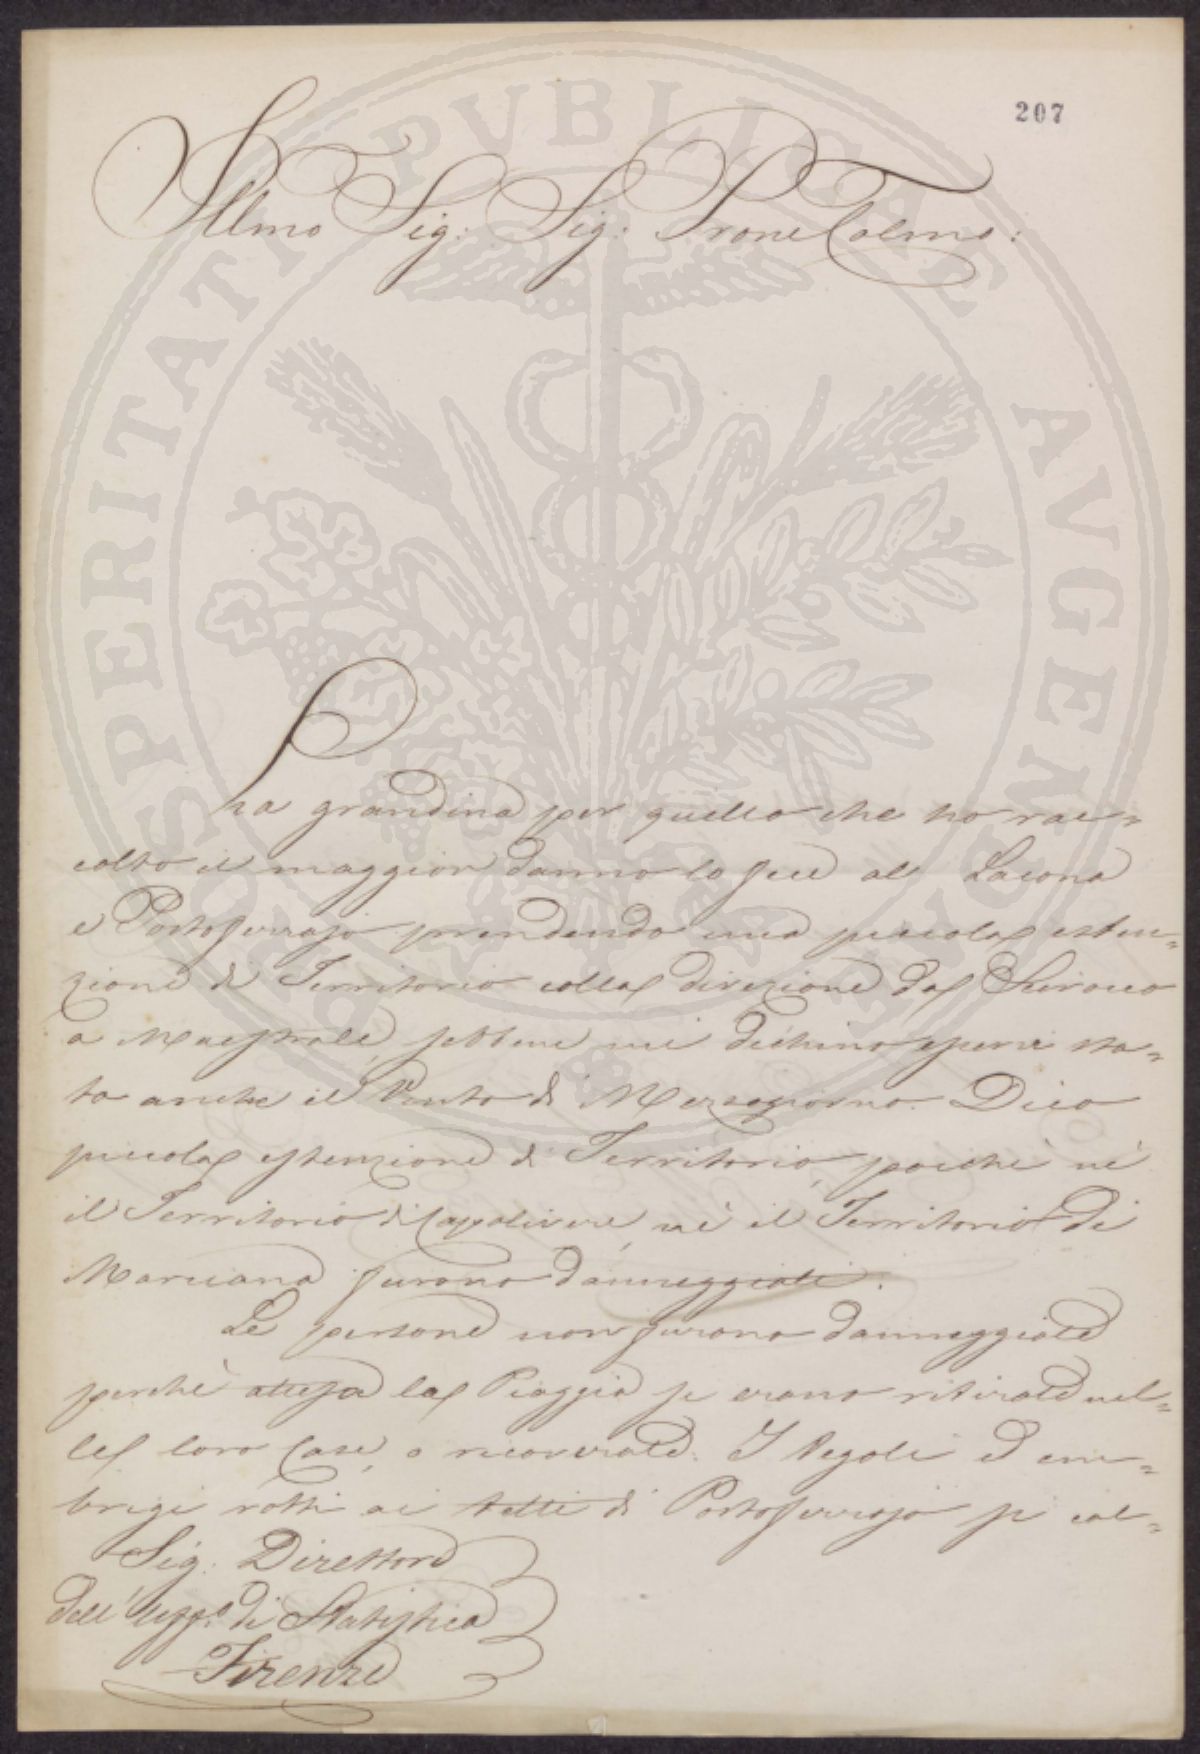 207
Illmo Sig: Sig: Prone Colmo:
La grandine per quello che ho rac=
colto il maggior danno lo fece al Lacona
e Portoferrajo prendendo una piccola esten=
zione di Territorio colla direzione da Scirocco
a Maestrale, sebbene mi dichino essersi sta=
to anche il Vento di Mezzogiorno. Dico
piccola estenzione di Territorio, poichè nè
il Territorio di Capoliveri, nè il Territorio di
Marciana furono danneggiati.
Le persone non furono danneggiate
perchè attesa la Pioggia si erano ritirate nel=
le loro Case, o ricoverate. I Tegoli ed em=
brigi rotti ai tetti di Portoferrajo si cal=
Sig. Direttore
dell'Uffo. di Statistica
Firenze
PROSPERITATI PVBLICAE AVGENDAE